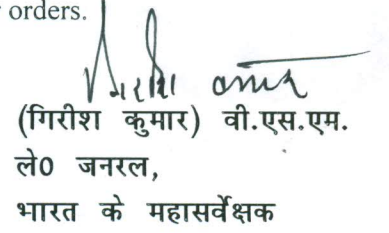 orders.
गिरीश कुमार
(गिरीश कुमार) वी.एस.एम.
ले0 जनरल,
भारत के महासर्वेक्षक